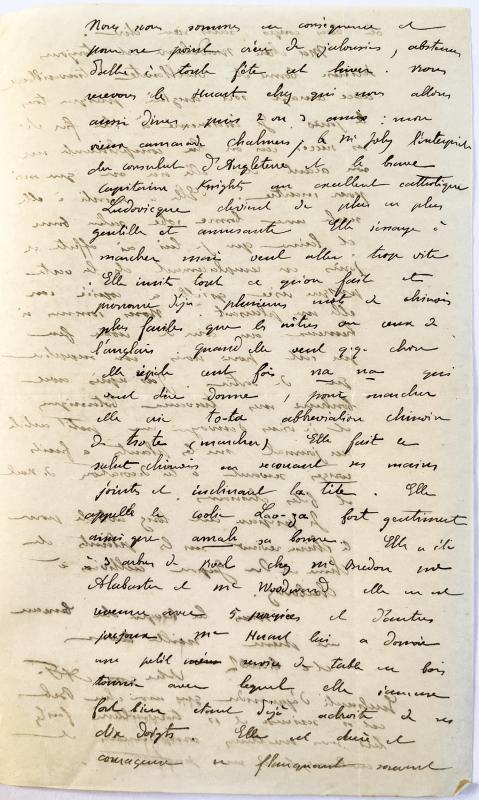 Nous nous sommes en conséquence et
pour ne point créer de jalousies, abstenus
d'aller à toute fête cet hiver. Nous
recevons le Huart chez qui nous allons
aussi dîner puis 2 ou 3 amis : mon
vieux camarade Chalmers, le Mr Joly l'interprète
du consulat d'Angleterre et le brave
capitaine Knights un excellent catholique
Ludovicque devient de plus en plus
gentille et amusante Elle s'essaye à
marcher mais veut aller trop vite
. Elle imite tout ce qu'on fait et
prononce déjà plusieurs mots de chinois
plus faciles que les nôtres ou ceux de
l'anglais quand elle veut q.q. chose
elle répète cent fois na na qui
veut dire donne, pour marcher
elle crie to-ta abbréviation chinoise
de tso te (marcher) Elle fait ce
salut chinois en secouant ses mains
jointes et inclinant la tête. Elle
appelle le coolie Lao-za fort gentiment
ainsi que amah sa bonne. Elle a été
à 3 arbres de Noël chez Me Bredon me
Alabaster et me Woodward elle en est
revenue avec 5 poupées et d'autres
joujoux Me Huart lui a donné
une petit service de table en bois
tourné avec lequel elle s'amuse
fort bien étant déjà adroite de ses
dix doigts. Elle est dure et
courageuse se flanquant souvent